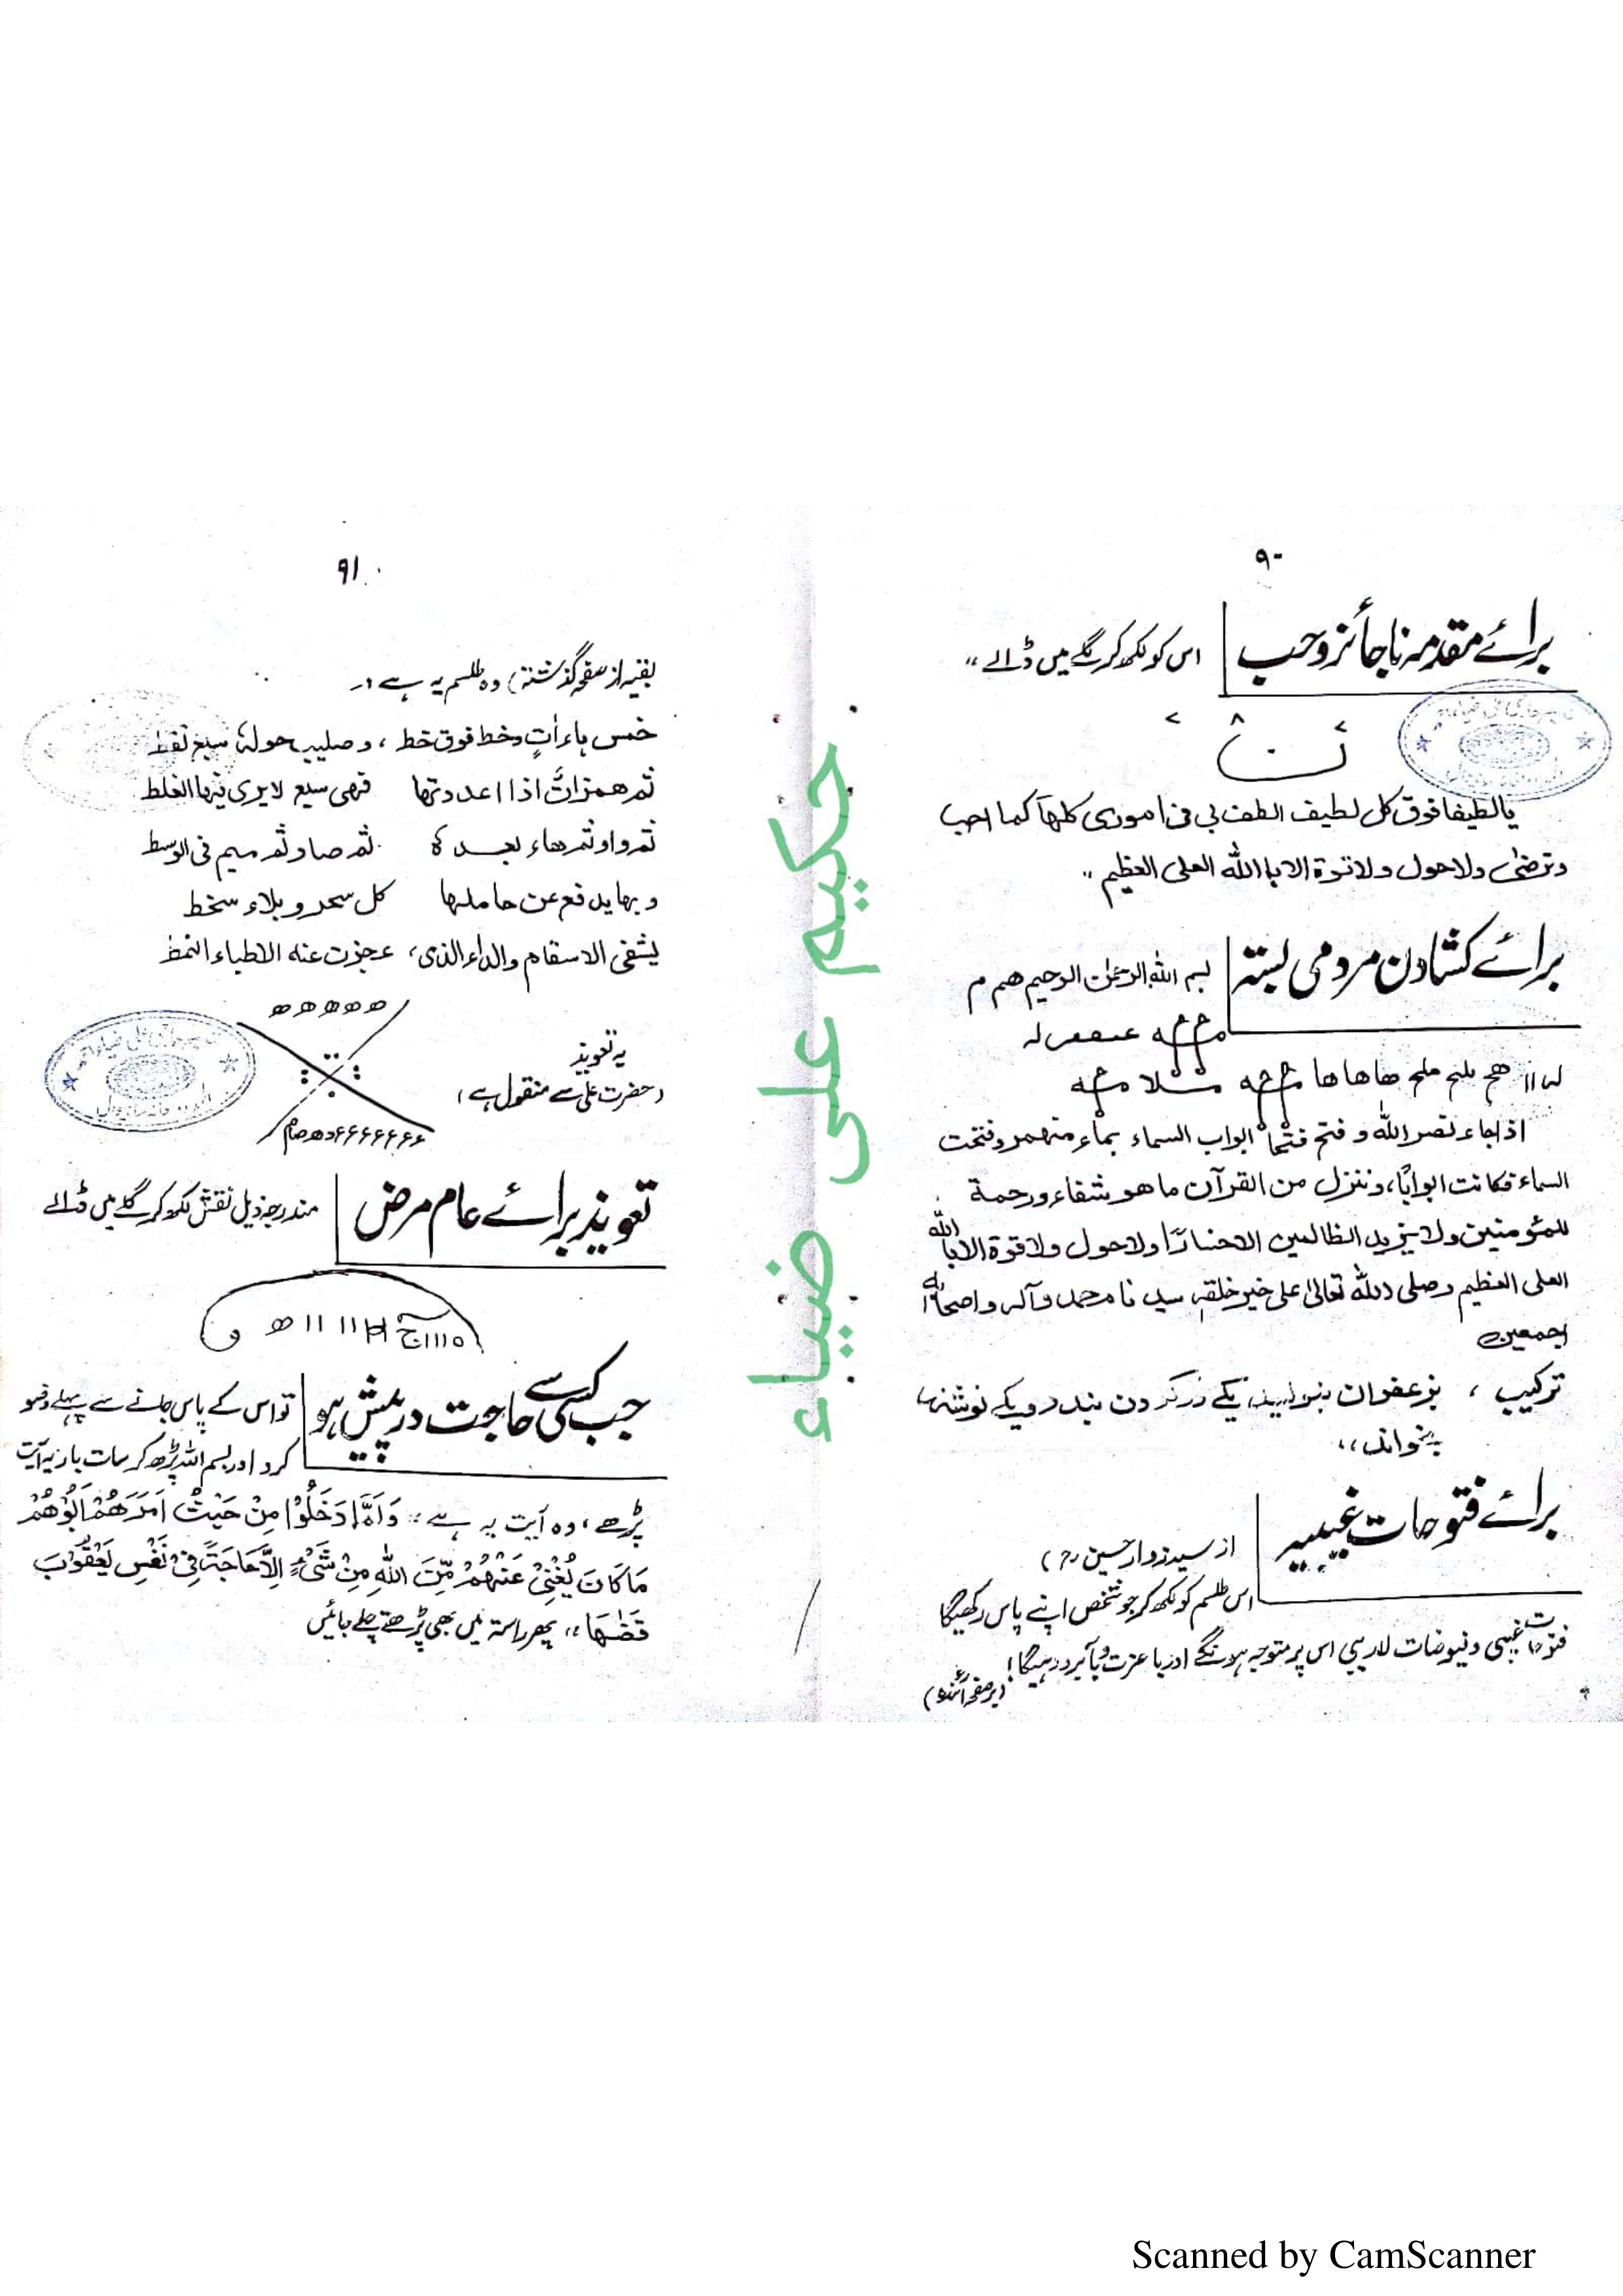 ۹۰
برائے مقدمہ ناجائز وحب
اس کو لکھ کر گلے میں ڈالے
یالطیفا فوق کل لطیف الطف بی فی اموری کلها کما احب
وترضی ولاحول ولاقوة الا باالله العلی العظیم
برائے کشادن مردمی بستہ
بسم الله الرحمن الرحیم هم م
هج ملح ملح هاهاها
اذاجاء نصرالله و فتح فتحا ابواب السماء بماء منهمر وفتحت
السماء فکانت ابوابا، وننزل من القرآن ما هو شفاء ورحمة
للمؤمنین ولا یزید الظالمین الاخسارًا ولاحول ولاقوة الا باالله
العلی العظیم وصلی الله تعالیٰ علی خیر خلقہ سیدنا محمد وآلہ واصحابہ
اجمعین
ترکیب ، بزعفران بنویسد، یکے در گردن بندد و یکے نوشتہ
بخواند
برائے فتوحات غیبیہ
از سید زوار حسین (رح)
اس طلسم کو لکھ کر جو شخص اپنے پاس رکھیگا
فتوحات غیبی و فیوضات لاریبی اس پر متوجہ ہونگے اور با عزت و باآبرو رہیگا!
(بر صفحہ آئندہ)
۹۱
بقیہ از صفحہ گذشتہ) وہ طلسم یہ ہے :۔
خمس ہاءاتٍ وخط فوق خط ، وصلیب حولہ سبع نقط
ثم همزاتٌ اذا اعددتها فهی سبع لا یری فیها الغلط
ثم واو ثم هاء بعدہ ثم صاد ثم میم فی الوسط
وبها یدفع عن حاملها کل سحر و بلاء سخط
یشفی الاسقام والداء الذی، عجزت عنه الاطباء النمط
ھ ھ ھ ھ ھ
یہ تعویذ
(حضرت علی سے منقول ہے)
تعویذ برائے عام مرض
مندرجہ ذیل نقش لکھ کر گلے میں ڈالے
جب کسی سے حاجت درپیش ہو
تو اس کے پاس جانے سے پہلے وضو
کرو اور بسم اللہ پڑھ کر سات بار یہ آیت
پڑھے ، وہ آیت یہ ہے : وَلَمَّا دَخَلُوْا مِنْ حَیْثُ اَمَرَهُمْ اَبُوْهُمْ
مَا کَانَ یُغْنِیْ عَنْهُمْ مِّنَ اللهِ مِنْ شَیْءٍ اِلَّا حَاجَةً فِیْ نَفْسِ یَعْقُوْبَ
قَضٰهَا ،، پھر راستہ میں بھی پڑھتے چلے جائیں
حکیم علی ضیاء
Scanned by CamScanner